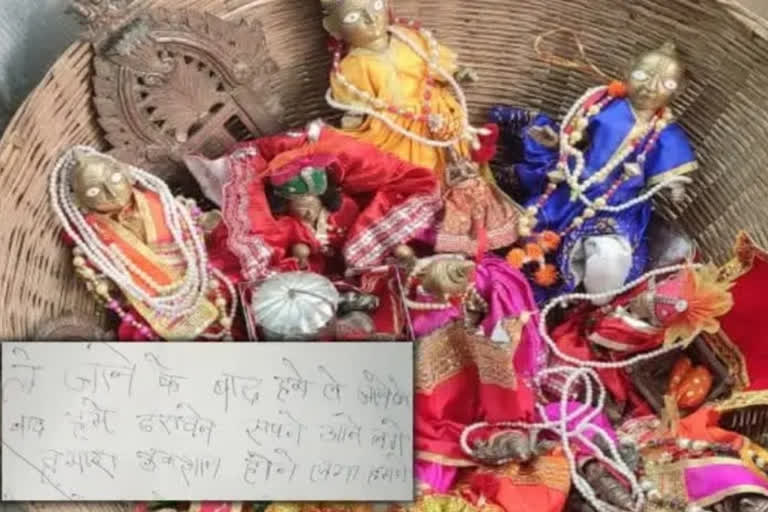 ले जाने के बाद हमे ले जानेके
बाद हमे डरावने सपने आने लगे
हमारा नुकशान होने लगा हमने